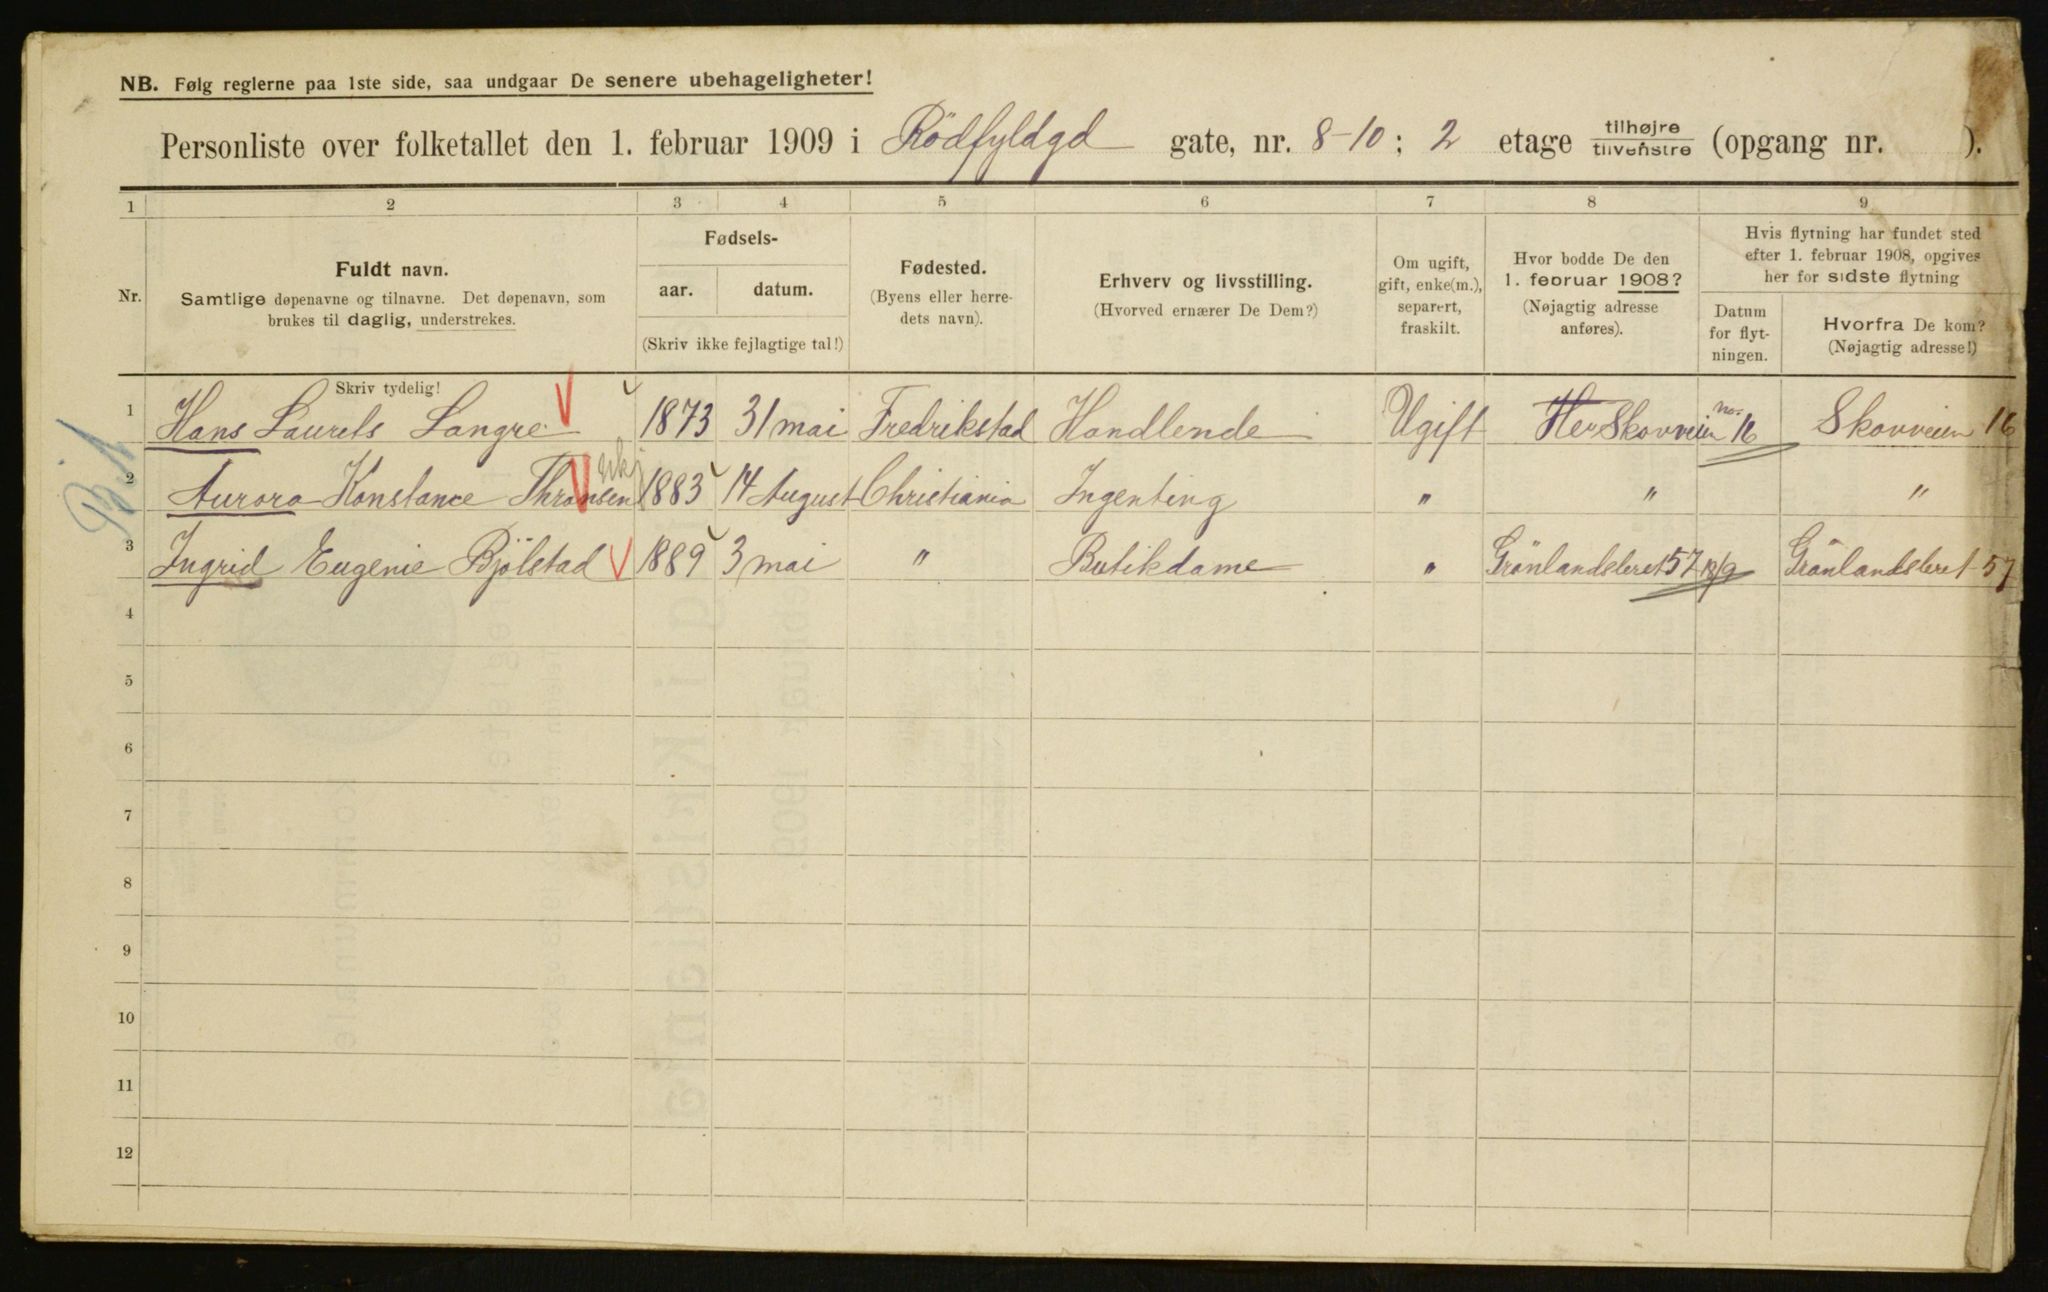 NB. Følg reglerne paa 1ste side, saa undgaar De senere ubehageligheter!
Personliste over folketallet den 1. februar 1909 i Rödfyldgd gate, nr. 8-10; 2 etage tilhøjre tilvenstre (opgang nr. ).
1 2 3 4 5 6 7 8 9
Nr.
Fuldt navn.
Samtlige døpenavne og tilnavne. Det døpenavn, som
brukes til daglig, understrekes.
Skriv tydelig!
Fødsels-
aar. datum.
(Skriv ikke fejlagtige tal!)
Fødested.
(Byens eller herre-
dets navn).
Erhverv og livsstilling.
(Hvorved ernærer De Dem?)
Om ugift,
gift, enke(m.),
separert,
fraskilt.
Hvor bodde De den
1. februar 1908?
(Nøjagtig adresse
anføres).
Hvis flytning har fundet sted
efter 1. februar 1908, opgives
her for sidste flytning
Datum
for flyt-
ningen.
Hvorfra De kom?
(Nøjagtig adresse!)
1 Hans Laurets Langre 1873 31 mai Fredrikstad Handlende Ugift Skovveien no. 16 Skovveien 16
2 Aurora Konstance Thronsen 1883 14 August Christiania Ingenting " " "
3 Ingrid Eugenie Bjölstad 1889 3 mai " Butikdame " Grönlandsleret 57 18/9 Grönlandsleret 57
4
5
6
7
8
9
10
11
12